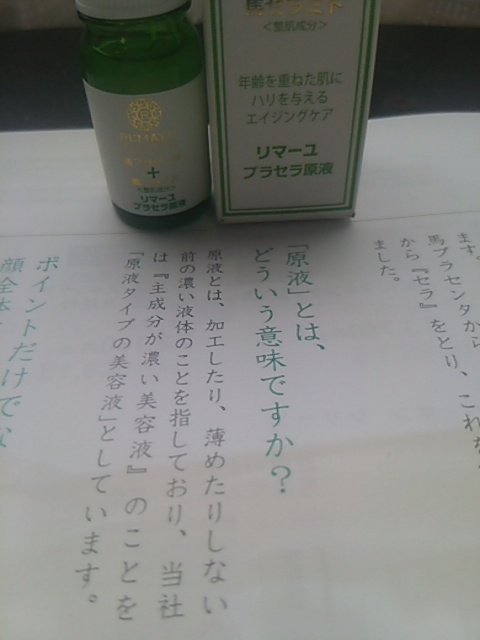 REMA
+
<整肌成分>
リマーユ
プラセラ原液
馬セラミド
<整肌成分>
年齢を重ねた肌に
ハリを与える
エイジングケア
リマーユ
プラセラ原液
ます。
馬プラセンタから
から『セラ』をとり、これを
ました。
「原液」とは、
どういう意味ですか?
原液とは、加工したり、薄めたりしない
前の濃い液体のことを指しており、当社
は『主成分が濃い美容液』のことを
「原液タイプの美容液」としています。
ポイントだけでな
顔全体